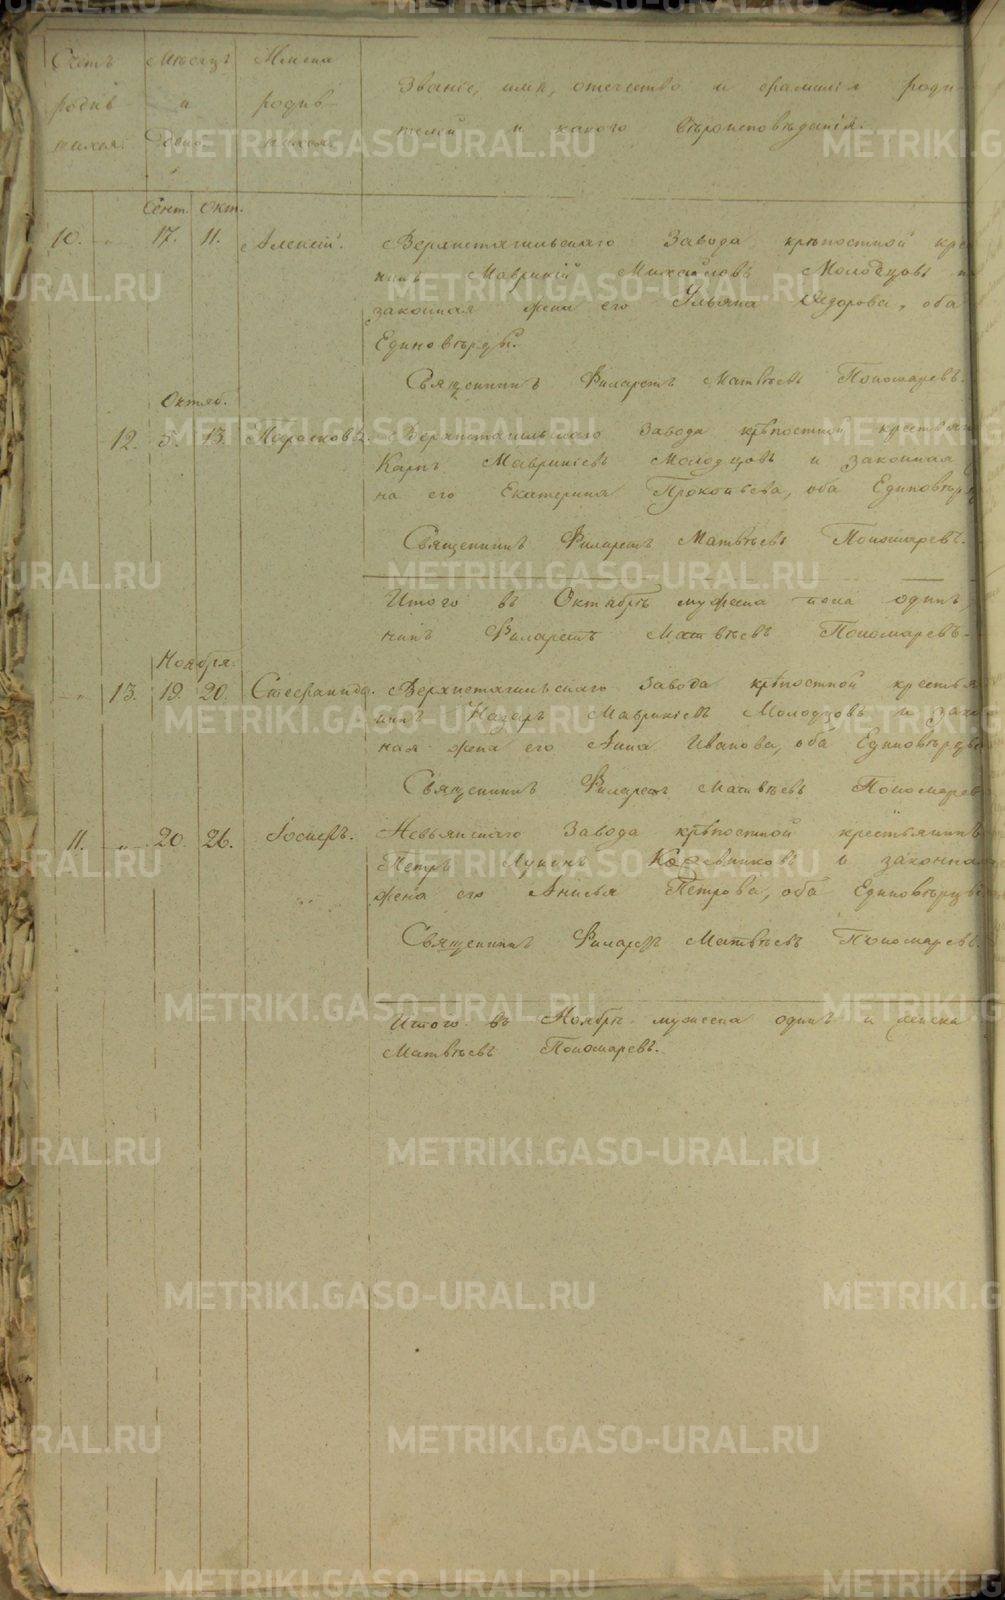 Счетъ Мѣсяцъ Имена
Званіе, имя, отчество и фамилія роди-
родив- и родив-
телей и какого вѣроисповѣданія.
шихся. День шихся.
Сент. Окт.
10. „ 17. 11. Алексій. Верхнетагильскаго Завода крѣпостной крес
нинъ Маврикій Михайловъ Молодцовъ и
законная жена его Ульяна Федорова, оба
Единовѣрцы.
Священникъ Филаретъ Матвѣевъ Пономаревъ.
Октяб.
12. 5. 13. Параскова. Верхнетагильскаго Завода крѣпостной крестьян
Карпъ Маврикіевъ Молодцовъ и законная
на его Екатерина Прокопьева, оба Единовѣрц
Священникъ Филаретъ Матвѣевъ Пономаревъ.
Итого въ Октябрѣ мужеска пола одинъ
никъ Филаретъ Матвѣевъ Пономаревъ.
Ноября.
„ 13. 19. 20. Стефанида. Верхнетагильскаго Завода крѣпостной крестья
нинъ Назаръ Маврикіевъ Молодцовъ и закон
ная жена его Анна Иванова, оба Единовѣрцы
Священникъ Филаретъ Матвѣевъ Пономарев
11. „ 20. 26. Іосифъ. Невьянскаго Завода крѣпостной крестьянинъ
Петръ Кожевниковъ и законная
жена его Анисья Петрова, оба Единовѣрцы
Священникъ Филаретъ Матвѣевъ Пономаревъ.
Итого въ Ноябрѣ мужеска одинъ и женска
Матвѣевъ Пономаревъ.